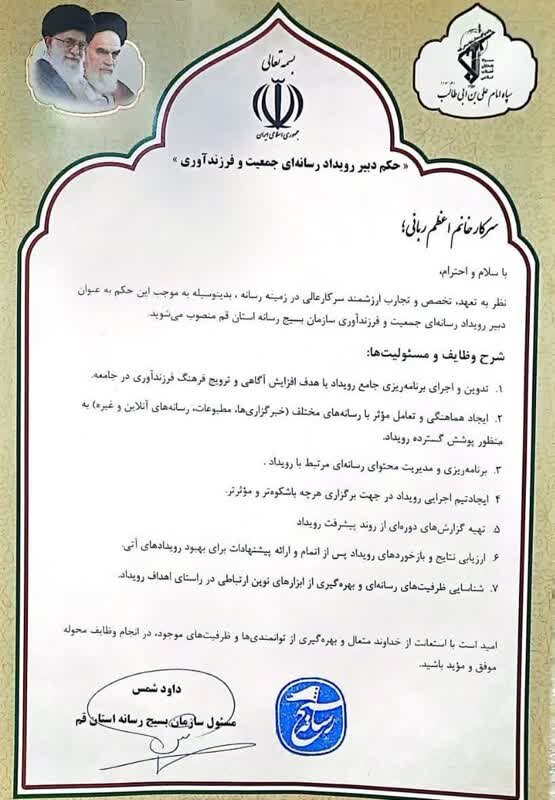 بسمه تعالی
جمهوری اسلامی ایران
سپاه امام علی بن ابی طالب
« حکم دبیر رویداد رسانه‌ای جمعیت و فرزندآوری »
سرکار خانم اعظم ربانی؛
با سلام و احترام،
نظر به تعهد، تخصص و تجارب ارزشمند سرکارعالی در زمینه رسانه ، بدینوسیله به موجب این حکم به عنوان
دبیر رویداد رسانه‌ای جمعیت و فرزندآوری سازمان بسیج رسانه استان قم منصوب می‌شوید.
شرح وظایف و مسئولیت‌ها:
۱. تدوین و اجرای برنامه‌ریزی جامع رویداد با هدف افزایش آگاهی و ترویج فرهنگ فرزندآوری در جامعه.
۲. ایجاد هماهنگی و تعامل مؤثر با رسانه‌های مختلف (خبرگزاری‌ها، مطبوعات، رسانه‌های آنلاین و غیره) به
منظور پوشش گسترده رویداد.
۳. برنامه‌ریزی و مدیریت محتوای رسانه‌ای مرتبط با رویداد .
۴ ایجادتیم اجرایی رویداد در جهت برگزاری هرچه باشکوه‌تر و مؤثرتر.
۵. تهیه گزارش‌های دوره‌ای از روند پیشرفت رویداد
۶. ارزیابی نتایج و بازخوردهای رویداد پس از اتمام و ارائه پیشنهادات برای بهبود رویدادهای آتی.
۷. شناسایی ظرفیت‌های رسانه‌ای و بهره‌گیری از ابزارهای نوین ارتباطی در راستای اهداف رویداد.
امید است با استعانت از خداوند متعال و بهره‌گیری از توانمندی‌ها و ظرفیت‌های موجود، در انجام وظایف محوله
موفق و مؤید باشید.
داود شمس
مسئول سازمان بسیج رسانه استان قم
بسیج رسانه